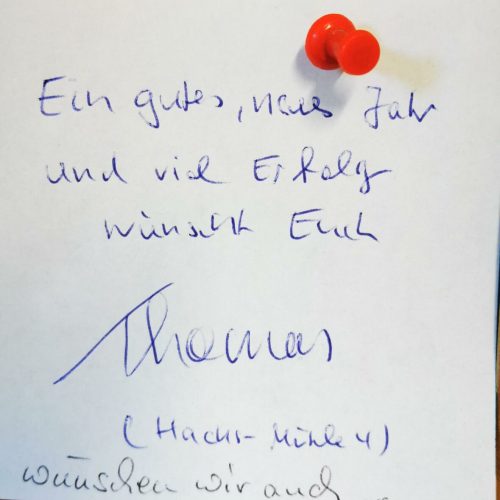 Ein gutes, neues Jahr
und viel Erfolg
wünscht Euch
Thomas
wünschen wir auch